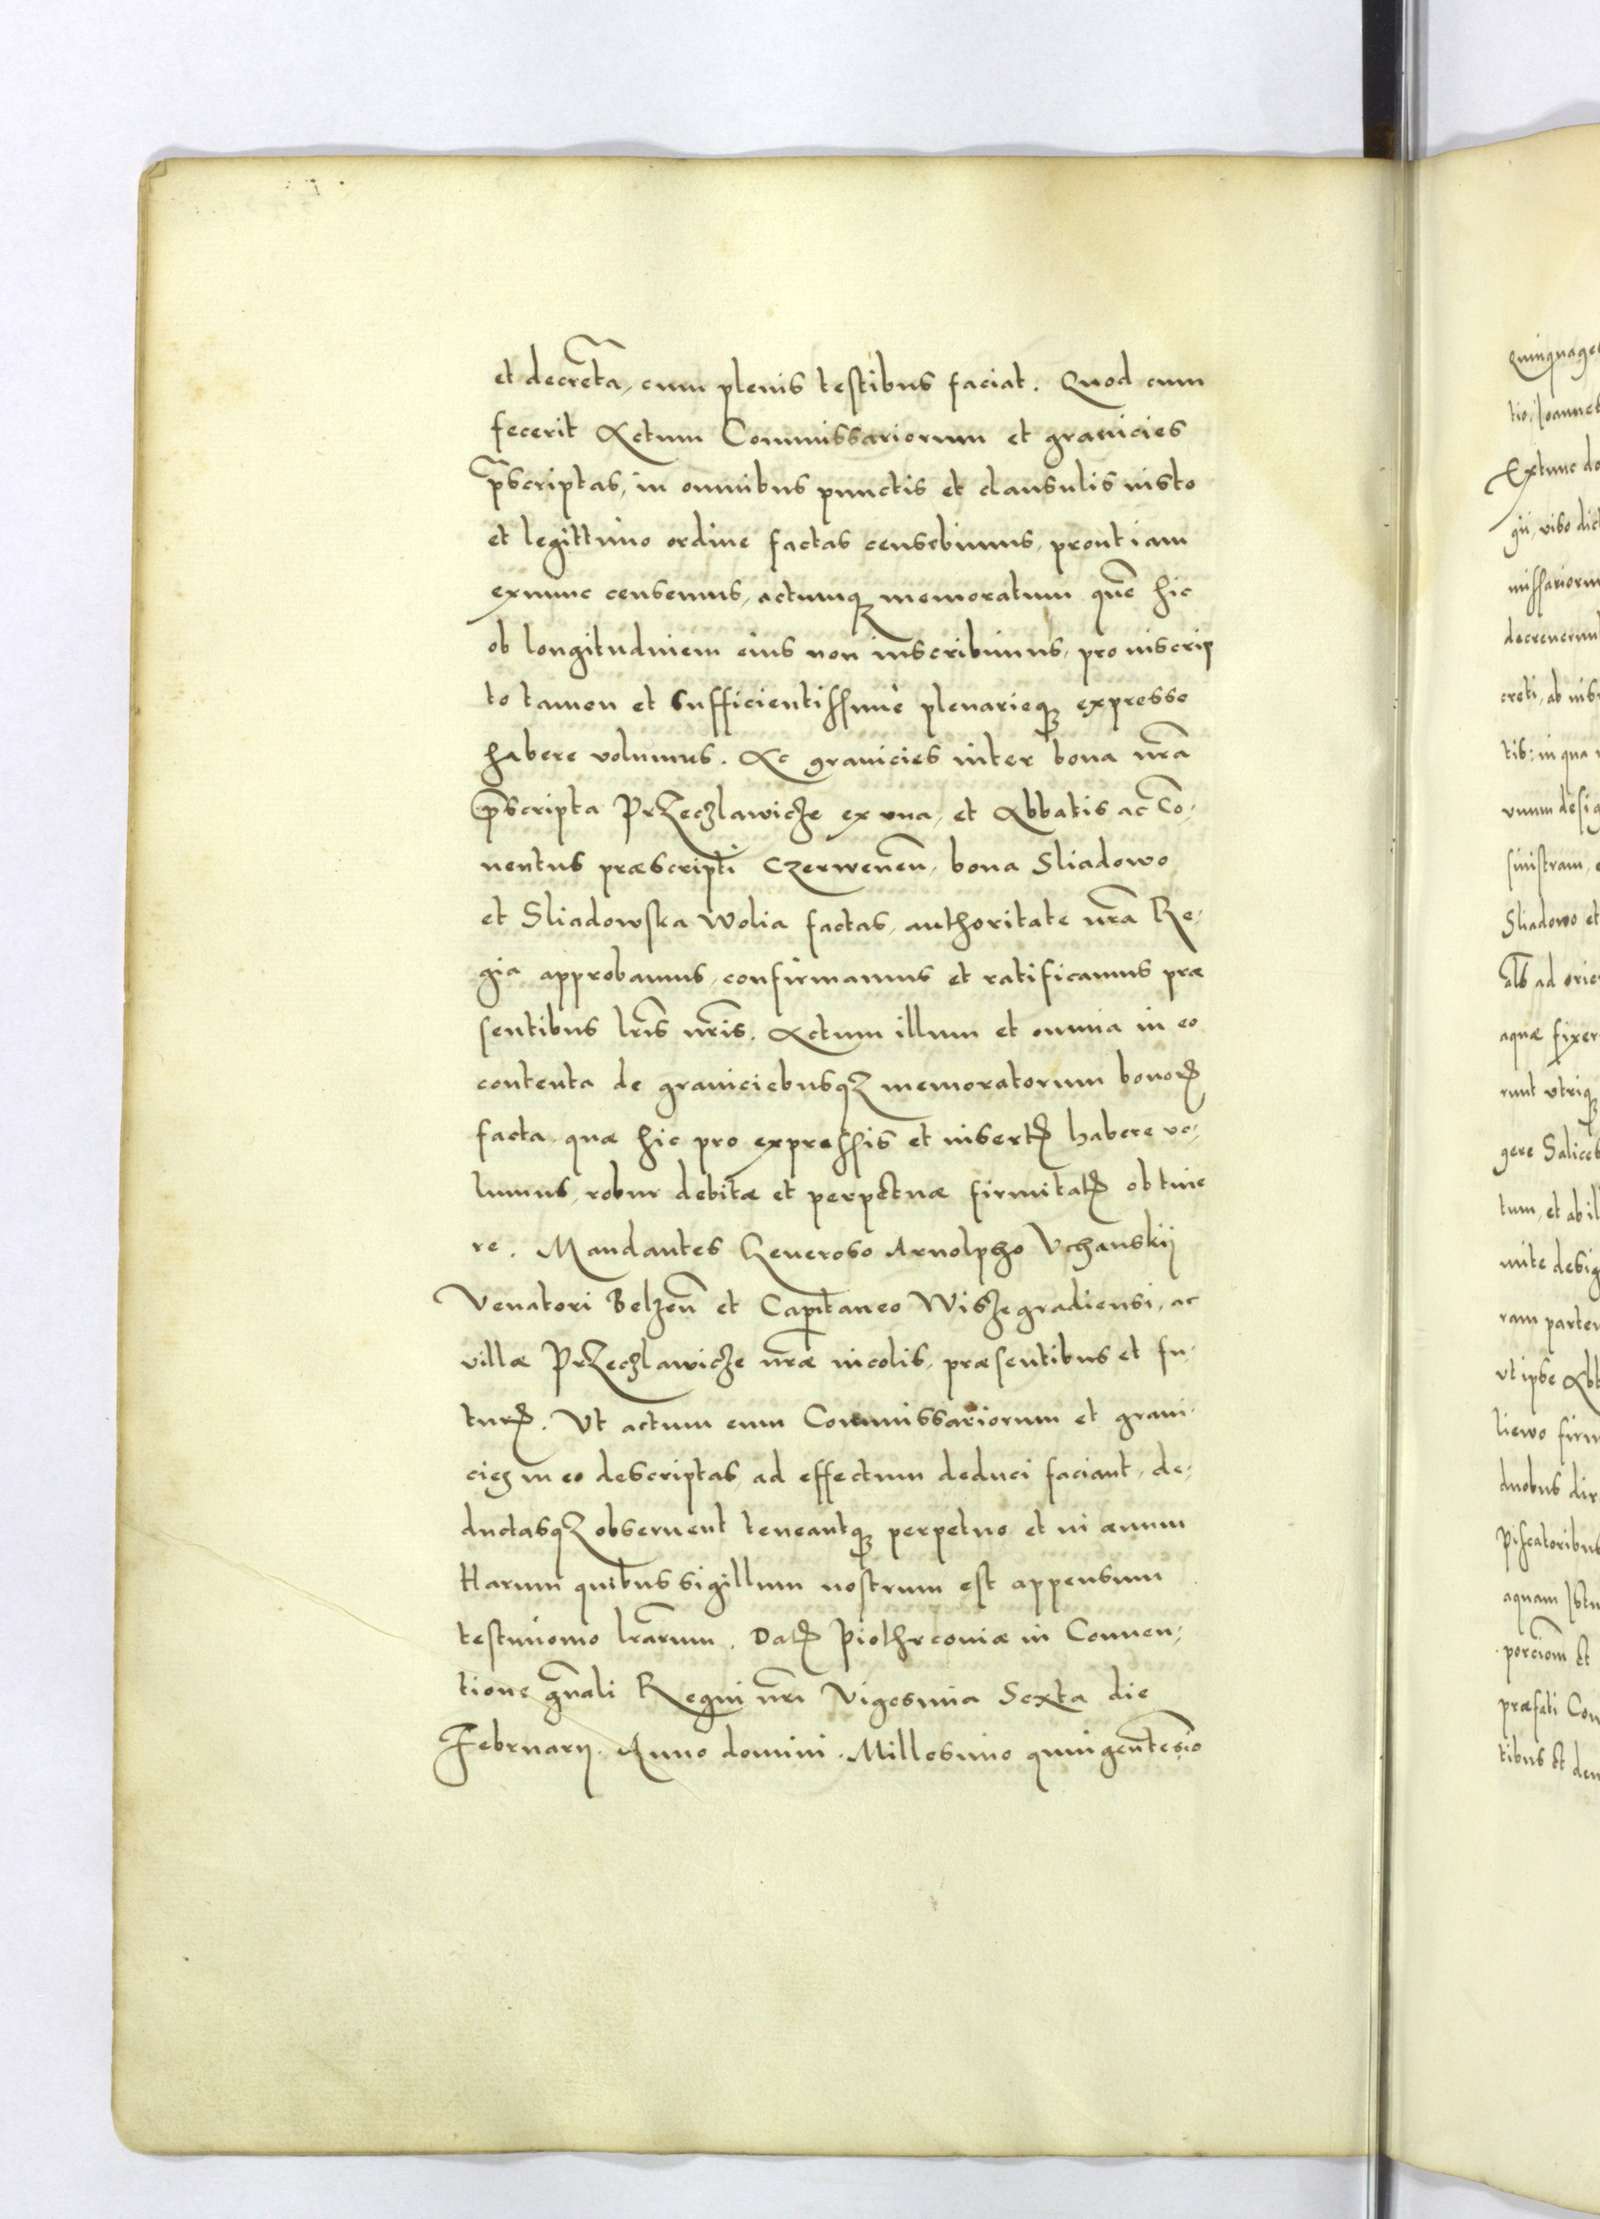 et decreta, cum plenis testibus faciat. Quod cum
fecerit Actum Commissariorum et granicies
p̃scriptas, in omnibus punctis et clausulis iusto
et legittimo ordine factas censebimus, prout iam
exnunc censemus, actumq; memoratum quẽ hic
ob longitudinem eius non inscribimus, pro inscrip
to tamen et sufficientissime plenarieq; expresso
habere volumus. Ac granicies inter bona nrã
p̃scripta Przeczlawicze ex vna, et Abbatis ac Co-
nentus præscripti Czerweneñ, bona Sliadowo
et Sliadowska Wolia factas, authoritate nrã Re-
gia approbamus, confirmamus et ratificamus præ
sentibus lrĩs nrĩs. Actum illum et omnia in eo
contenta de graniciebusq; memoratorum bonorꝝ
facta, quæ hic pro expressis et insertꝭ habere vo-
lumus, robur debitæ et perpetuæ firmitatꝭ obtine
re. Mandantes Generoso Arnolpho Vchanskij
Venatori Belzeñ et Capitaneo Wiszegradiensi, ac
villæ Przeczlawicze nræ incolis, præsentibus et fu-
turꝭ. Vt actum eum Commissariorum et grani-
cies in eo descriptas, ad effectum deduci faciant, de-
ductasq; obseruent teneantq; perpetuo et in æuum
Harum quibus sigillum nostrum est appensum
testimonio lrãrum. Datꝭ Piothrcouiæ in Conuen-
tione gñali Regni nrĩ Vigesima Sexta die
Februarij. Anno domini. Millesimo quingentesĩo
Quinquages
tio, Ioannes
Extunc do
gii, viso dict
missariorum
decreuerunt
creti, ab
tib: in qua
vnum desig
sinistram,
Sliadowo et
ad orie
aquæ fixer
runt vtriq;
gere Salices
tum, et ab il
mite desig
ram partem
vt ipse Abb
liewo firm
duobus dir
Piscatoribus
aquam
porcioñ et
præfati Com
tibus et den